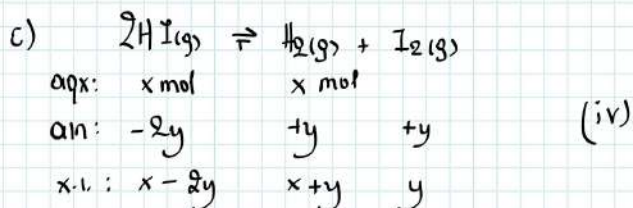 c) 2HI(g) ⇌ H2(g) + I2(g)
aqx: x mol x mol
an: -2y +y +y (iv)
x.l. : x - 2y x+y y